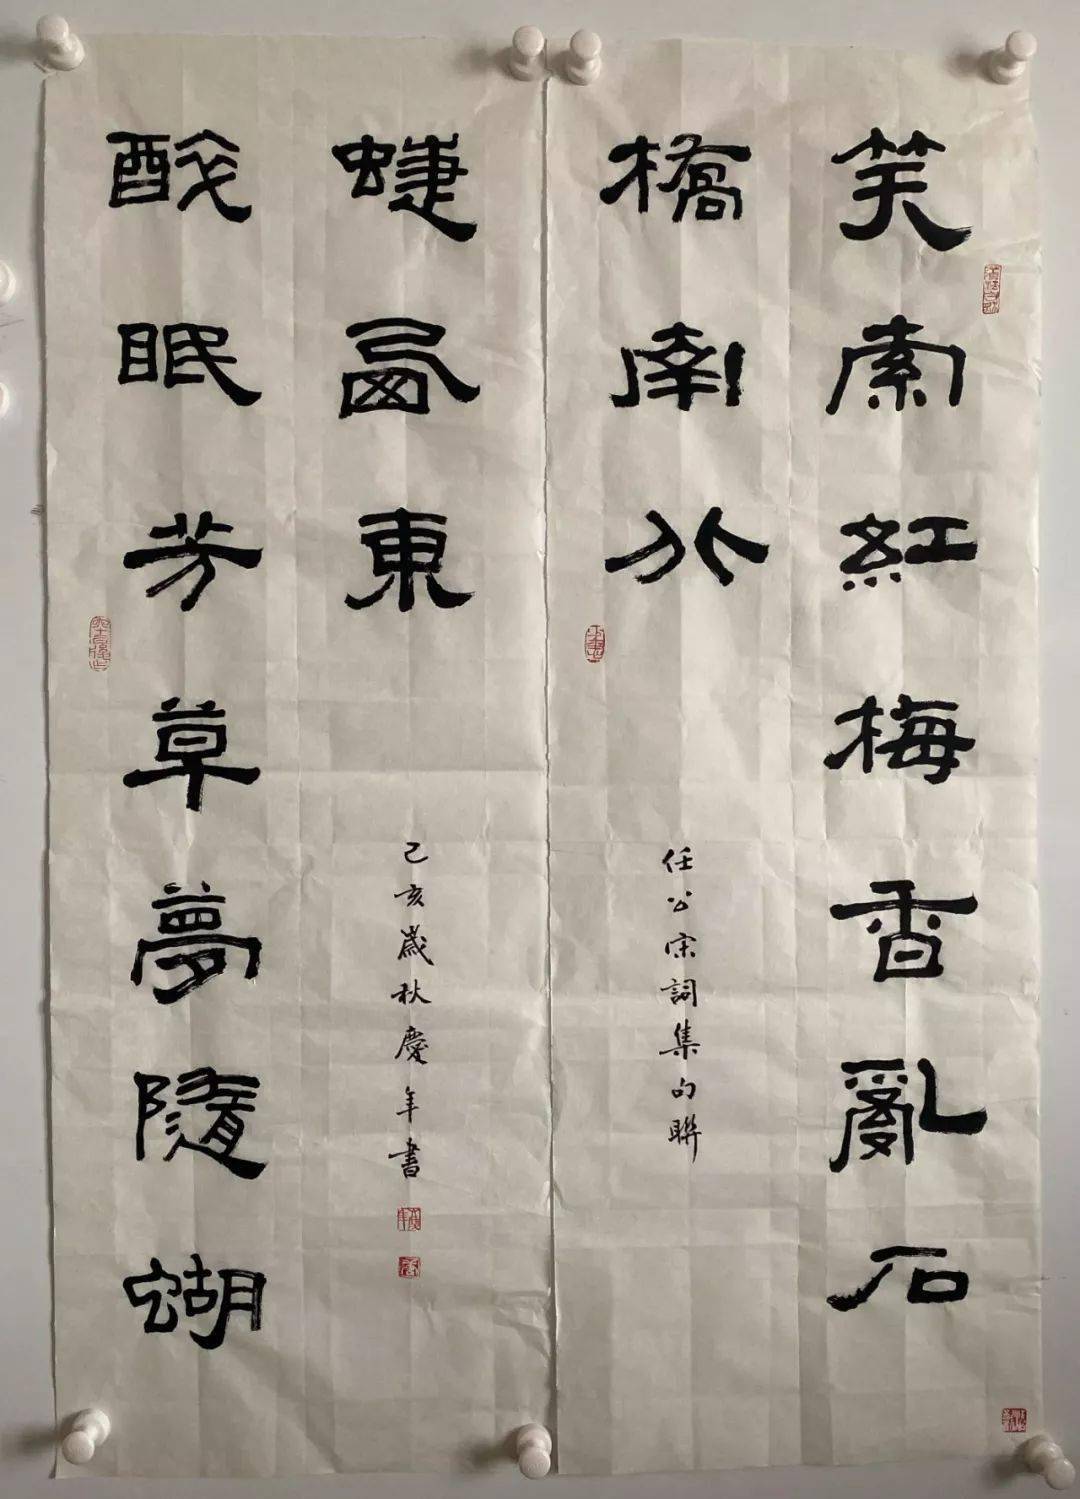 笑索紅梅香亂石
橋南北
任公宋詞集句聯
醉眠芳草夢隨蝴
蜨西東
己亥歲秋慶年書